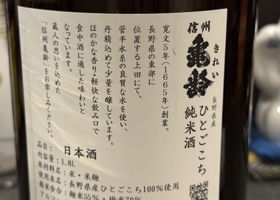 信州
亀齢
きれい
長野県産
ひとごこち
純米酒
寛文5年(1665年)創業。
長野県の東部に
位置する上田にて、
菅平水系の良質な水を使い、
丹精込めて少量を醸しています。
ほのかな香り・軽快な飲み口で
食中酒に適した味わいと
なっています。
蔵人の思いを込めた
「信州亀齢」をお楽しみください。
日本酒
1.8L
米・米麹
長野県産ひとごこち100%使用